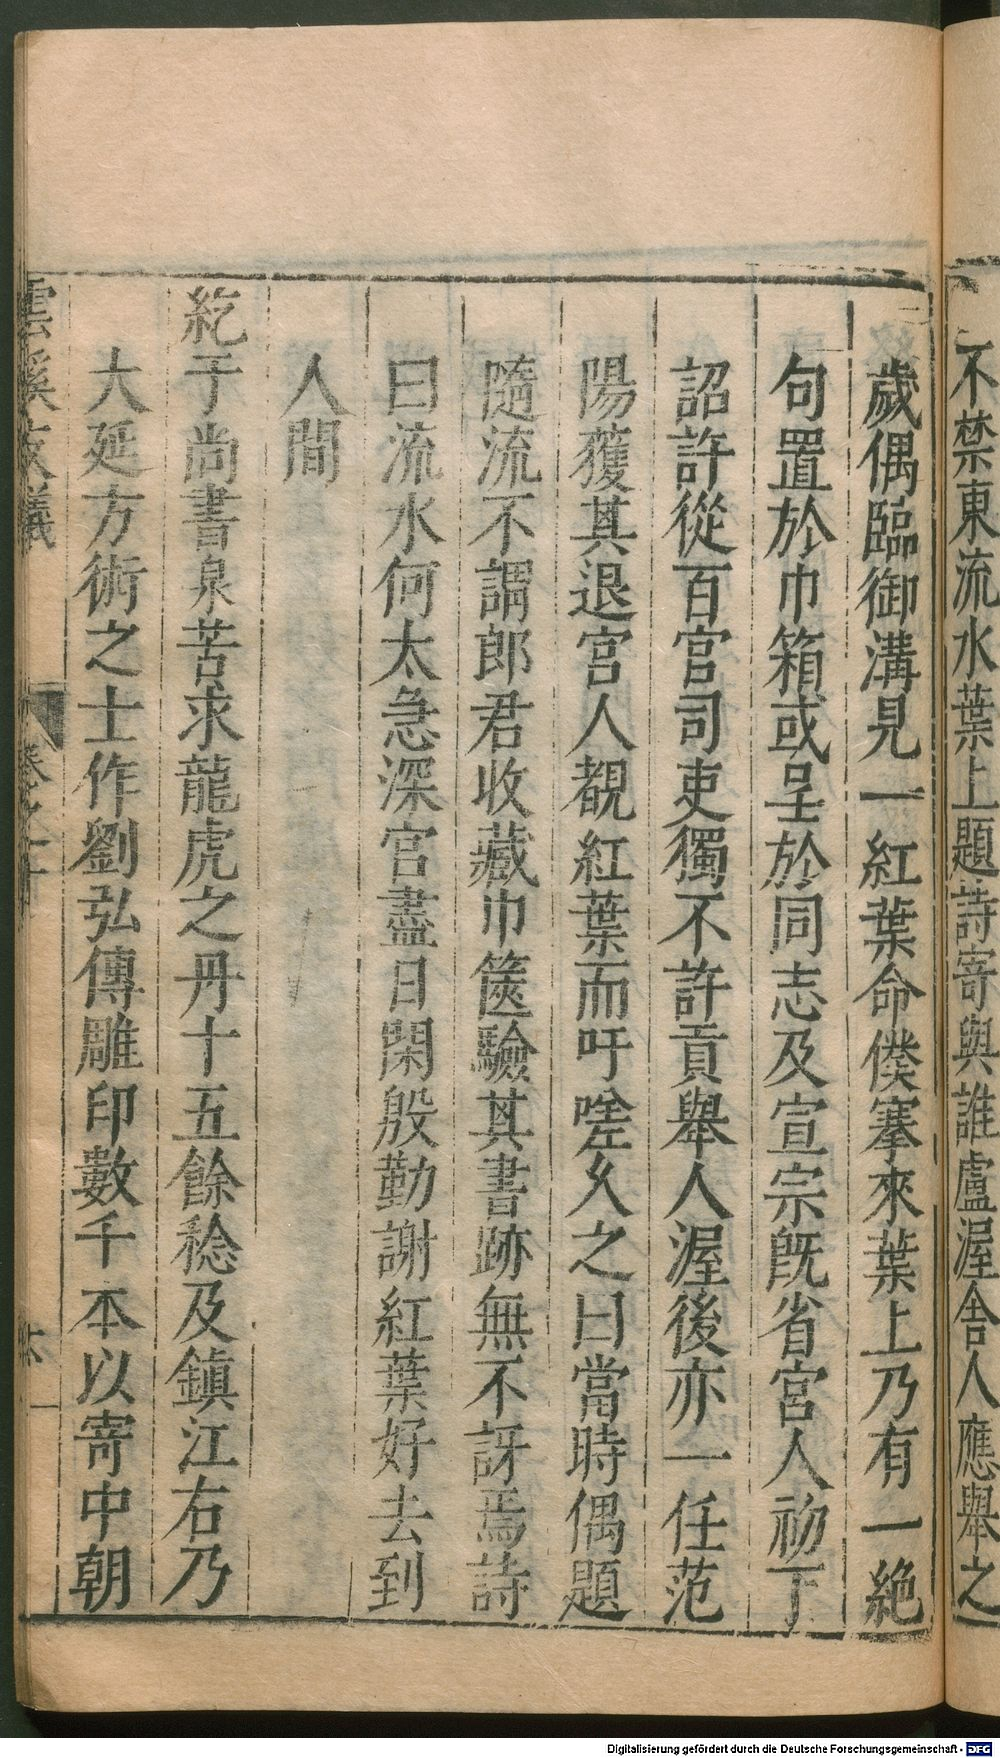 不禁東流水葉上題詩寄與誰盧渥舎人應舉之
歲偶臨御溝見一紅葉命僕搴來葉上乃有一絶
句置於巾箱或呈於同志及宣宗旣省宮人初下
詔許從百官司吏獨不許貢舉人渥後亦一任范
陽獲其退宮人覩紅葉而吁嗟久之曰當時偶題
隨流不謂郎君收藏巾篋驗其書跡無不訝焉詩
曰流水何太急深宮盡日閑殷勤謝紅葉好去到
人間
紇于尚書泉苦求龍虎之丹十五餘稔及鎮江右乃
大延方術之士作劉弘傳雕印數千本以寄中朝
雲溪友議
Digitalisierung gefördert durch die Deutsche Forschungsgemeinschaft - DFG